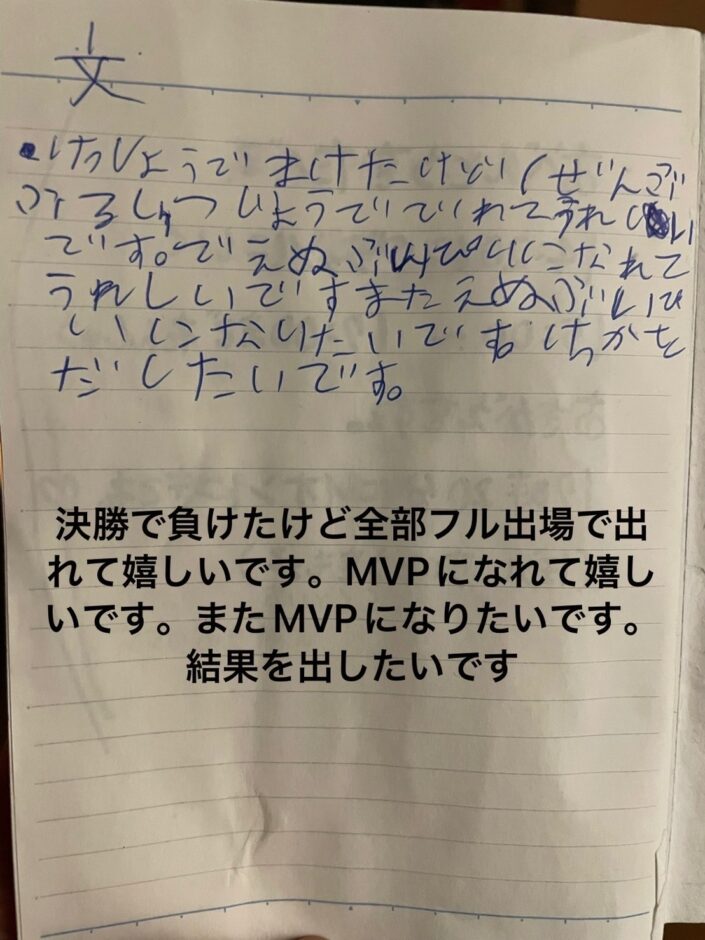 文
・けっしょうでまけたけど、ぜんぶ
ふるしゅつじょうででれてうれしい
です。でえぬぶいぴいになれて
うれしいですまたえぬぶいぴ
いになりたいです。けっかを
だしたいです。
決勝で負けたけど全部フル出場で出
れて嬉しいです。MVPになれて嬉し
いです。またMVPになりたいです。
結果を出したいです